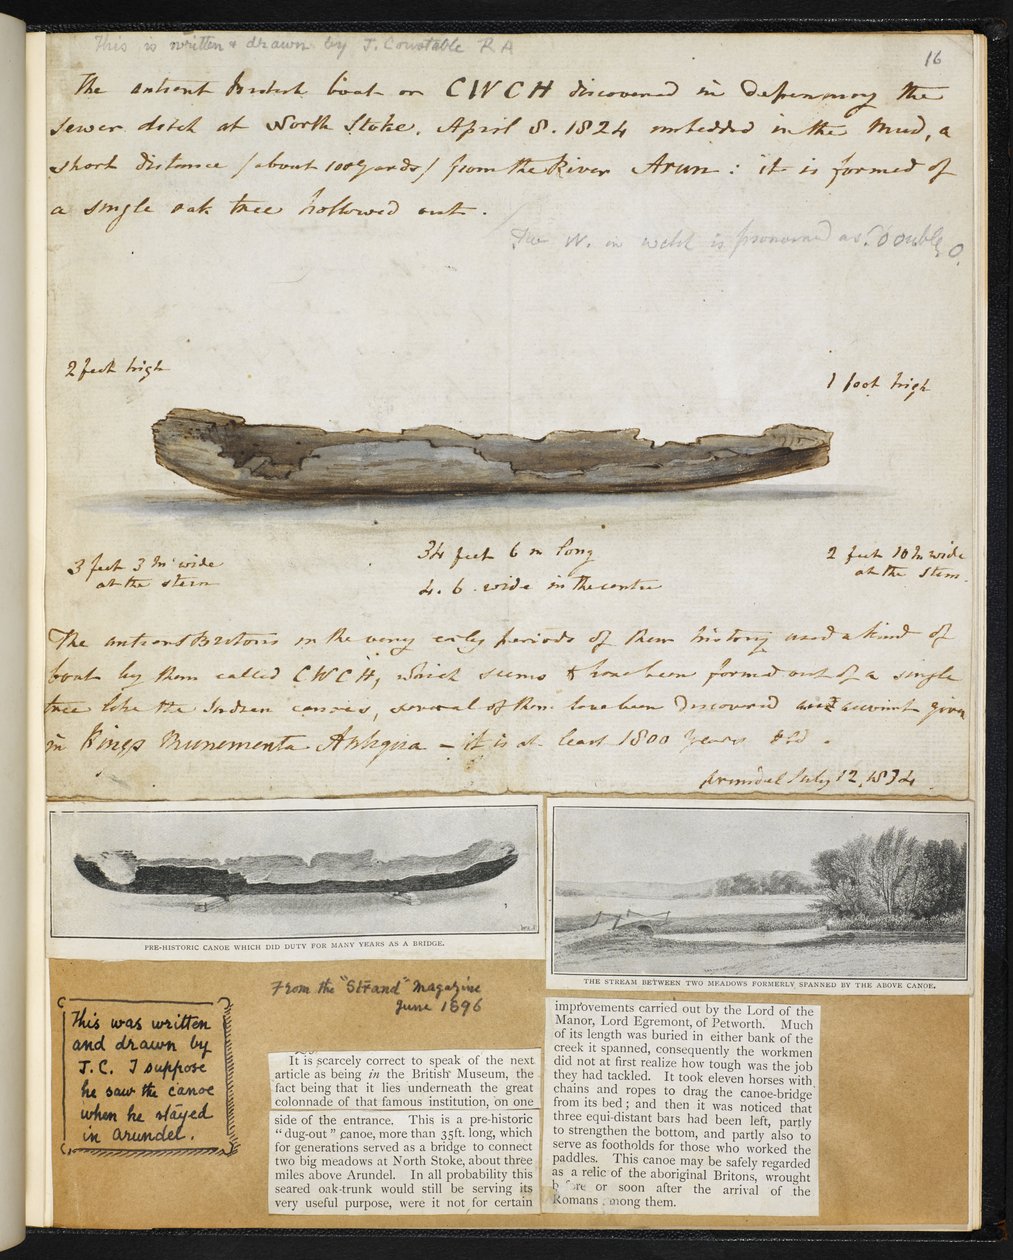 This is written & drawn by J. Constable R A
16
The antient British boat or CWCH discovered in deepening the
sewer ditch at North Stoke. April 8. 1824 imbedded in the mud, a
short distance /about 100 yards/ from the River Arun : it is formed of
a single oak tree hollowed out.
The W. in welch is pronounced as double O.
2 feet high
1 foot high
3 feet 3 In wide
at the stern
34 feet 6 in long
4. 6 wide in the centre
2 feet 10 In wide
at the stem.
The antient Britons in the very early periods of their history used a kind of
boat by them called CWCH, which seems to have been formed out of a single
tree like the Indian canoes, several of them have been discovered and account given
in Kings Munementa Antiqua – it is at least 1800 years old.
Arundel July 12, 1834
PRE-HISTORIC CANOE WHICH DID DUTY FOR MANY YEARS AS A BRIDGE.
THE STREAM BETWEEN TWO MEADOWS FORMERLY SPANNED BY THE ABOVE CANOE.
From the "Strand" Magazine
June 1896
This was written
and drawn by
J.C. I suppose
he saw the canoe
when he stayed
in Arundel.
It is scarcely correct to speak of the next
article as being in the British Museum, the
fact being that it lies underneath the great
colonnade of that famous institution, on one
side of the entrance. This is a pre-historic
"dug-out" canoe, more than 35ft. long, which
for generations served as a bridge to connect
two big meadows at North Stoke, about three
miles above Arundel. In all probability this
seared oak-trunk would still be serving its
very useful purpose, were it not for certain
improvements carried out by the Lord of the
Manor, Lord Egremont, of Petworth. Much
of its length was buried in either bank of the
creek it spanned, consequently the workmen
did not at first realize how tough was the job
they had tackled. It took eleven horses with
chains and ropes to drag the canoe-bridge
from its bed; and then it was noticed that
three equi-distant bars had been left, partly
to strengthen the bottom, and partly also to
serve as footholds for those who worked the
paddles. This canoe may be safely regarded
as a relic of the aboriginal Britons, wrought
before or soon after the arrival of the
Romans among them.